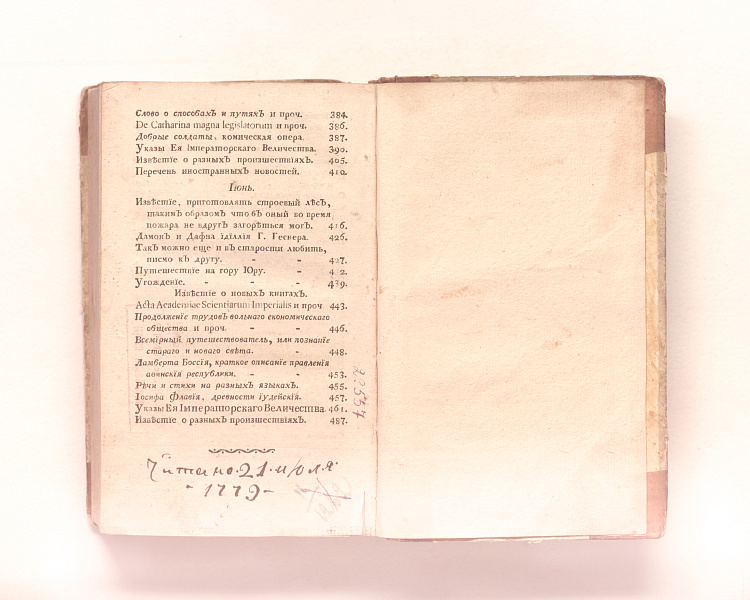 Слово о способахъ и путяхъ и проч. 384.
De Catharina magna legislatorum и проч. 386.
Добрые солдаты, комическая опера. 387.
Указы Ея Императорскаго Величества. 390.
Извѣстіе о разныхъ произшествіяхъ. 405.
Перечень иностранныхъ новостей. 410.
Іюнь.
Извѣстіе, приготовлять строевый лѣсъ,
такимъ образомъ чтобъ оный во время
пожара не вдругъ загорѣться могъ. 416.
Дамонъ и Дафна їділлія Г. Геснера. 426.
Такъ можно еще и въ старости любить,
писмо къ другу. - - 427.
Путешествіе на гору Юру. - 4 2.
Угожденіе. - - - 439.
Извѣстіе о новыхъ книгахъ.
Acta Academiae Scientiarum Imperialis и проч 443.
Продолженіе трудовъ вольнаго економическаго
общества и проч. - - 446.
Всемірный путешествователь, или познаніе
стараго и новаго свѣта. - 448.
Ламберта Боссія, краткое описаніе правленія
авинскія республики. - - 453.
Рѣчи и стихи на разныхъ языкахъ. 455.
Іосифа Флавія, древности іудейскія. 457.
Указы Ея Императорскаго Величества. 461.
Извѣстіе о разныхъ произшествіяхъ. 487.
Читано. 21. июля.
- 1779 -